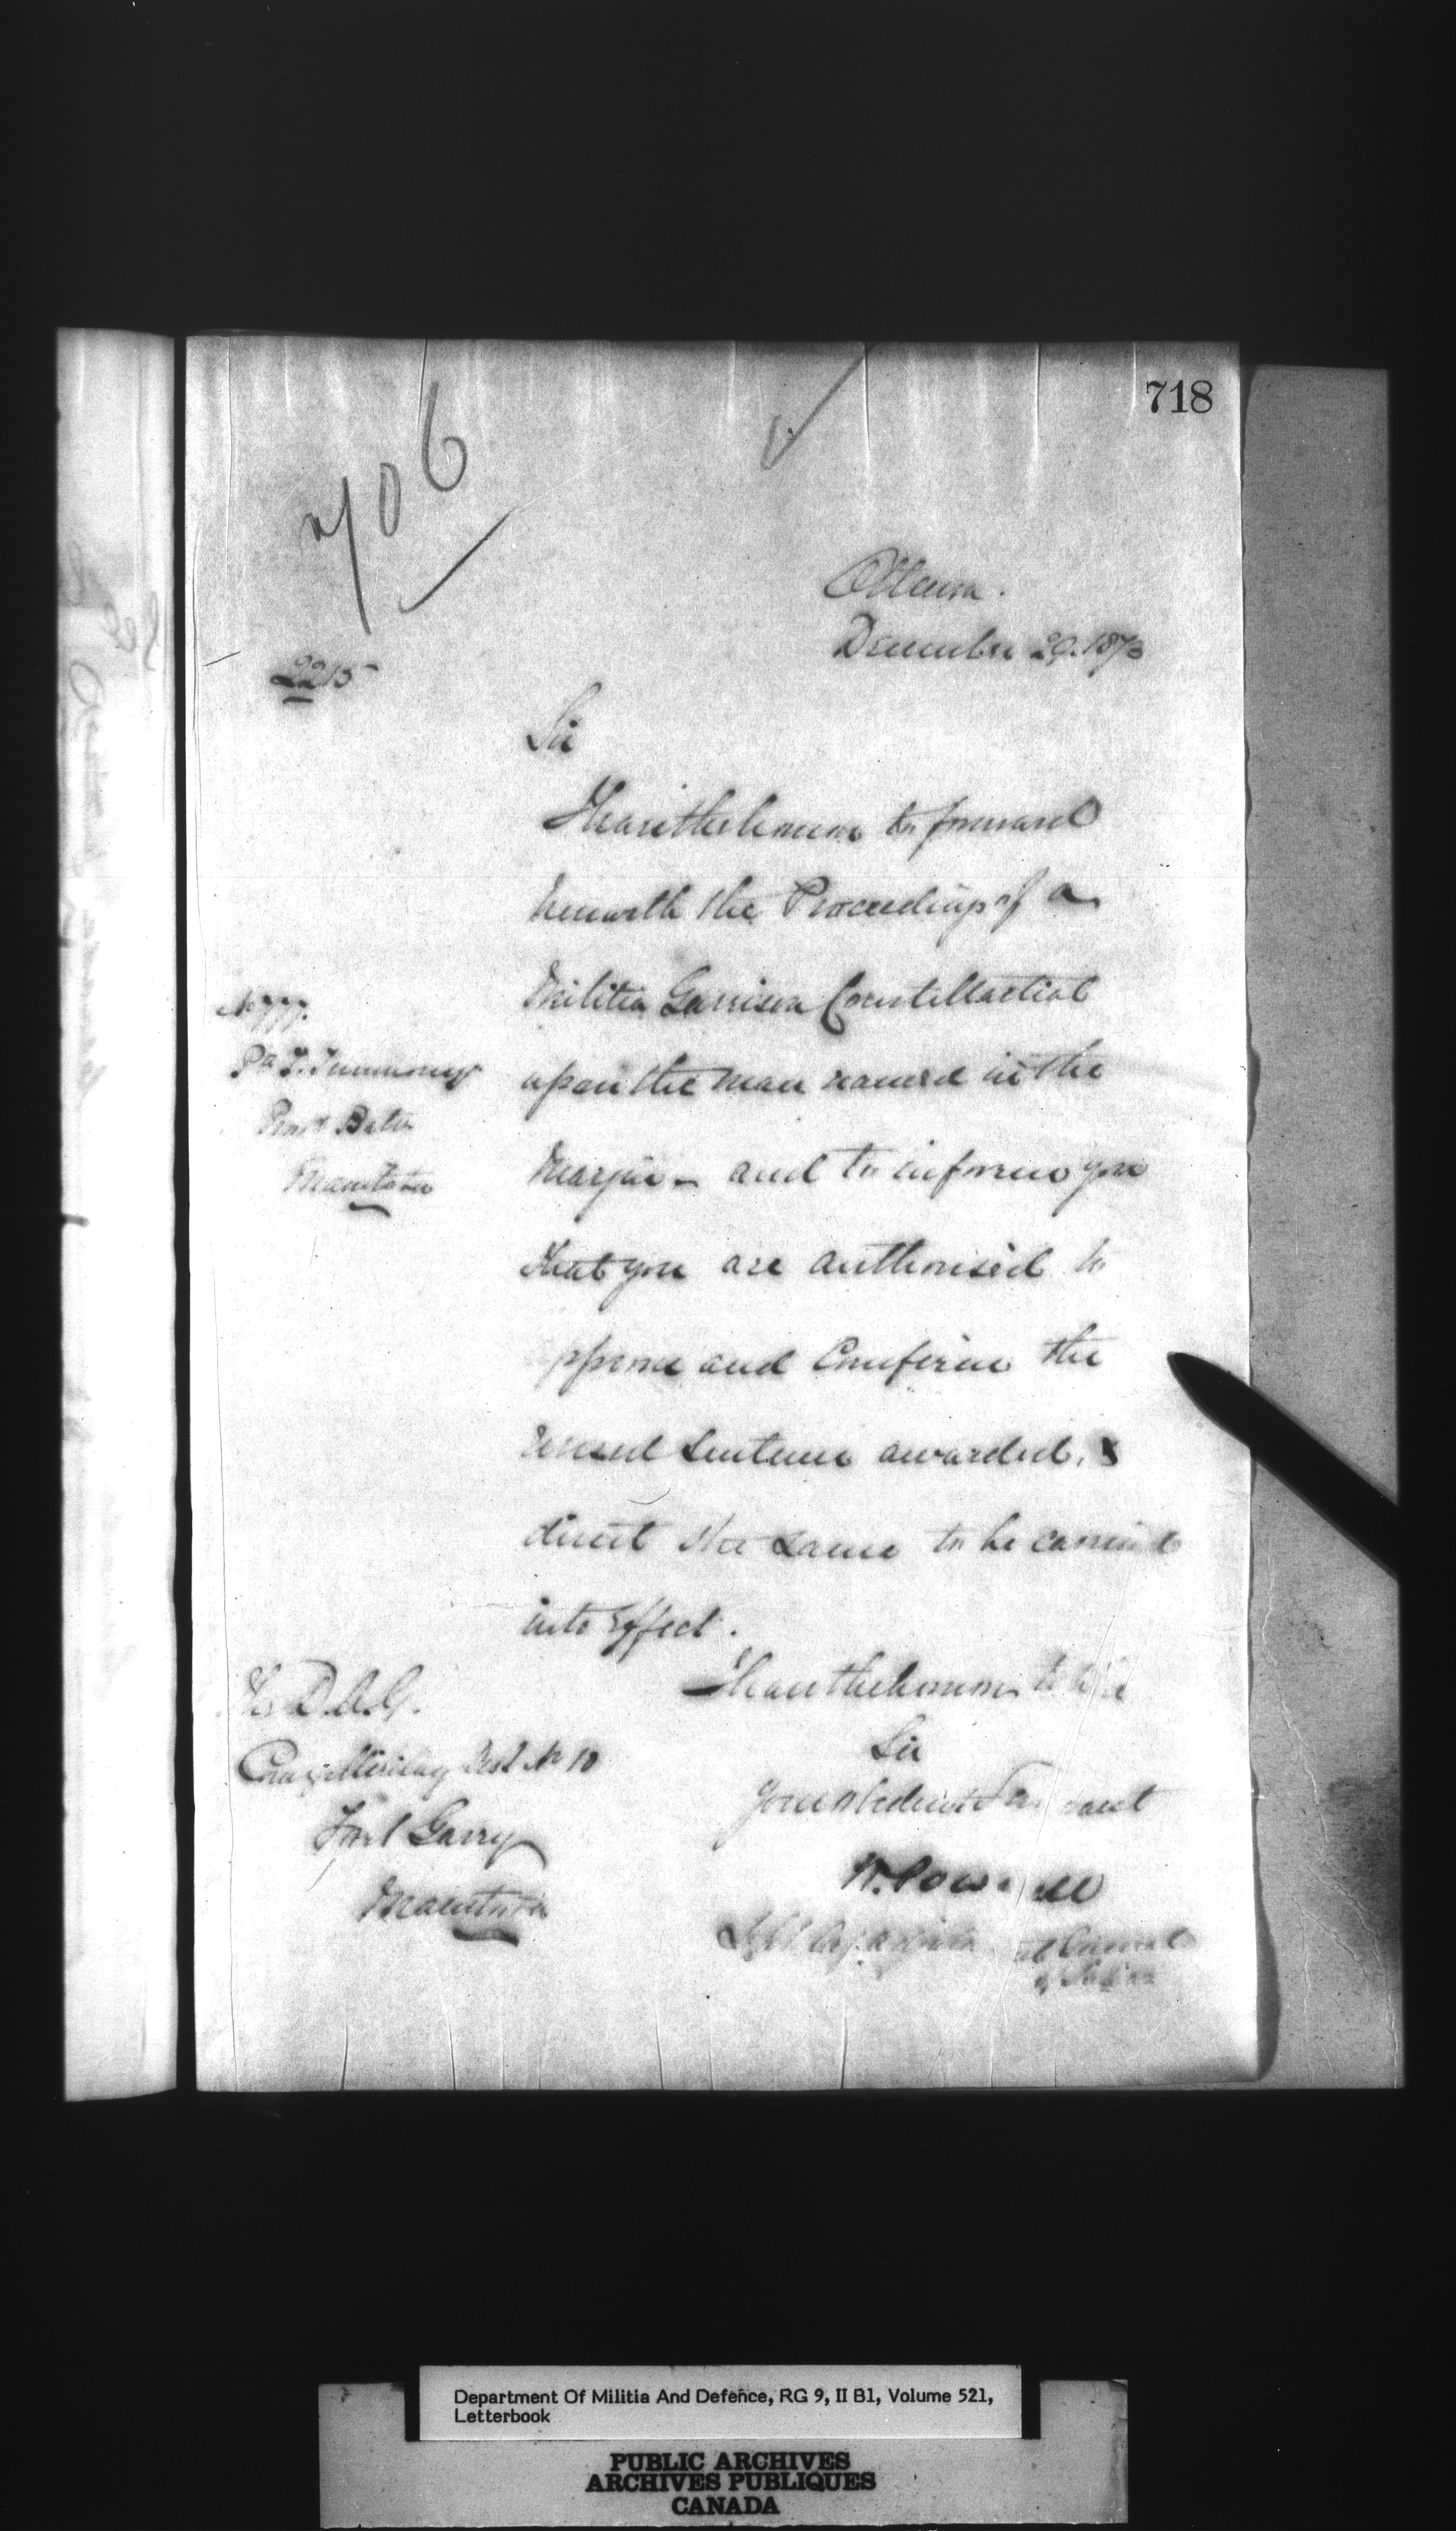 718
706
Ottawa.
December 29. 1873
2215
Sir
I have the honour to forward
herewith the Proceedings of a
Militia Garrison Court Martial
No 777.
upon the man named in the
Prov Batn
Manitoba
Margin - and to inform you
that you are authorised to
approve and Confirm the
revised Sentence awarded, &
direct the same to be carried
into Effect.
I have the honour to be
Sir
Your obedient Servant
W. Powell
The D.A.G.
Comg Military Dist No 10
Fort Garry
Manitoba
Department Of Militia And Defence, RG 9, II B1, Volume 521,
Letterbook
PUBLIC ARCHIVES
ARCHIVES PUBLIQUES
CANADA